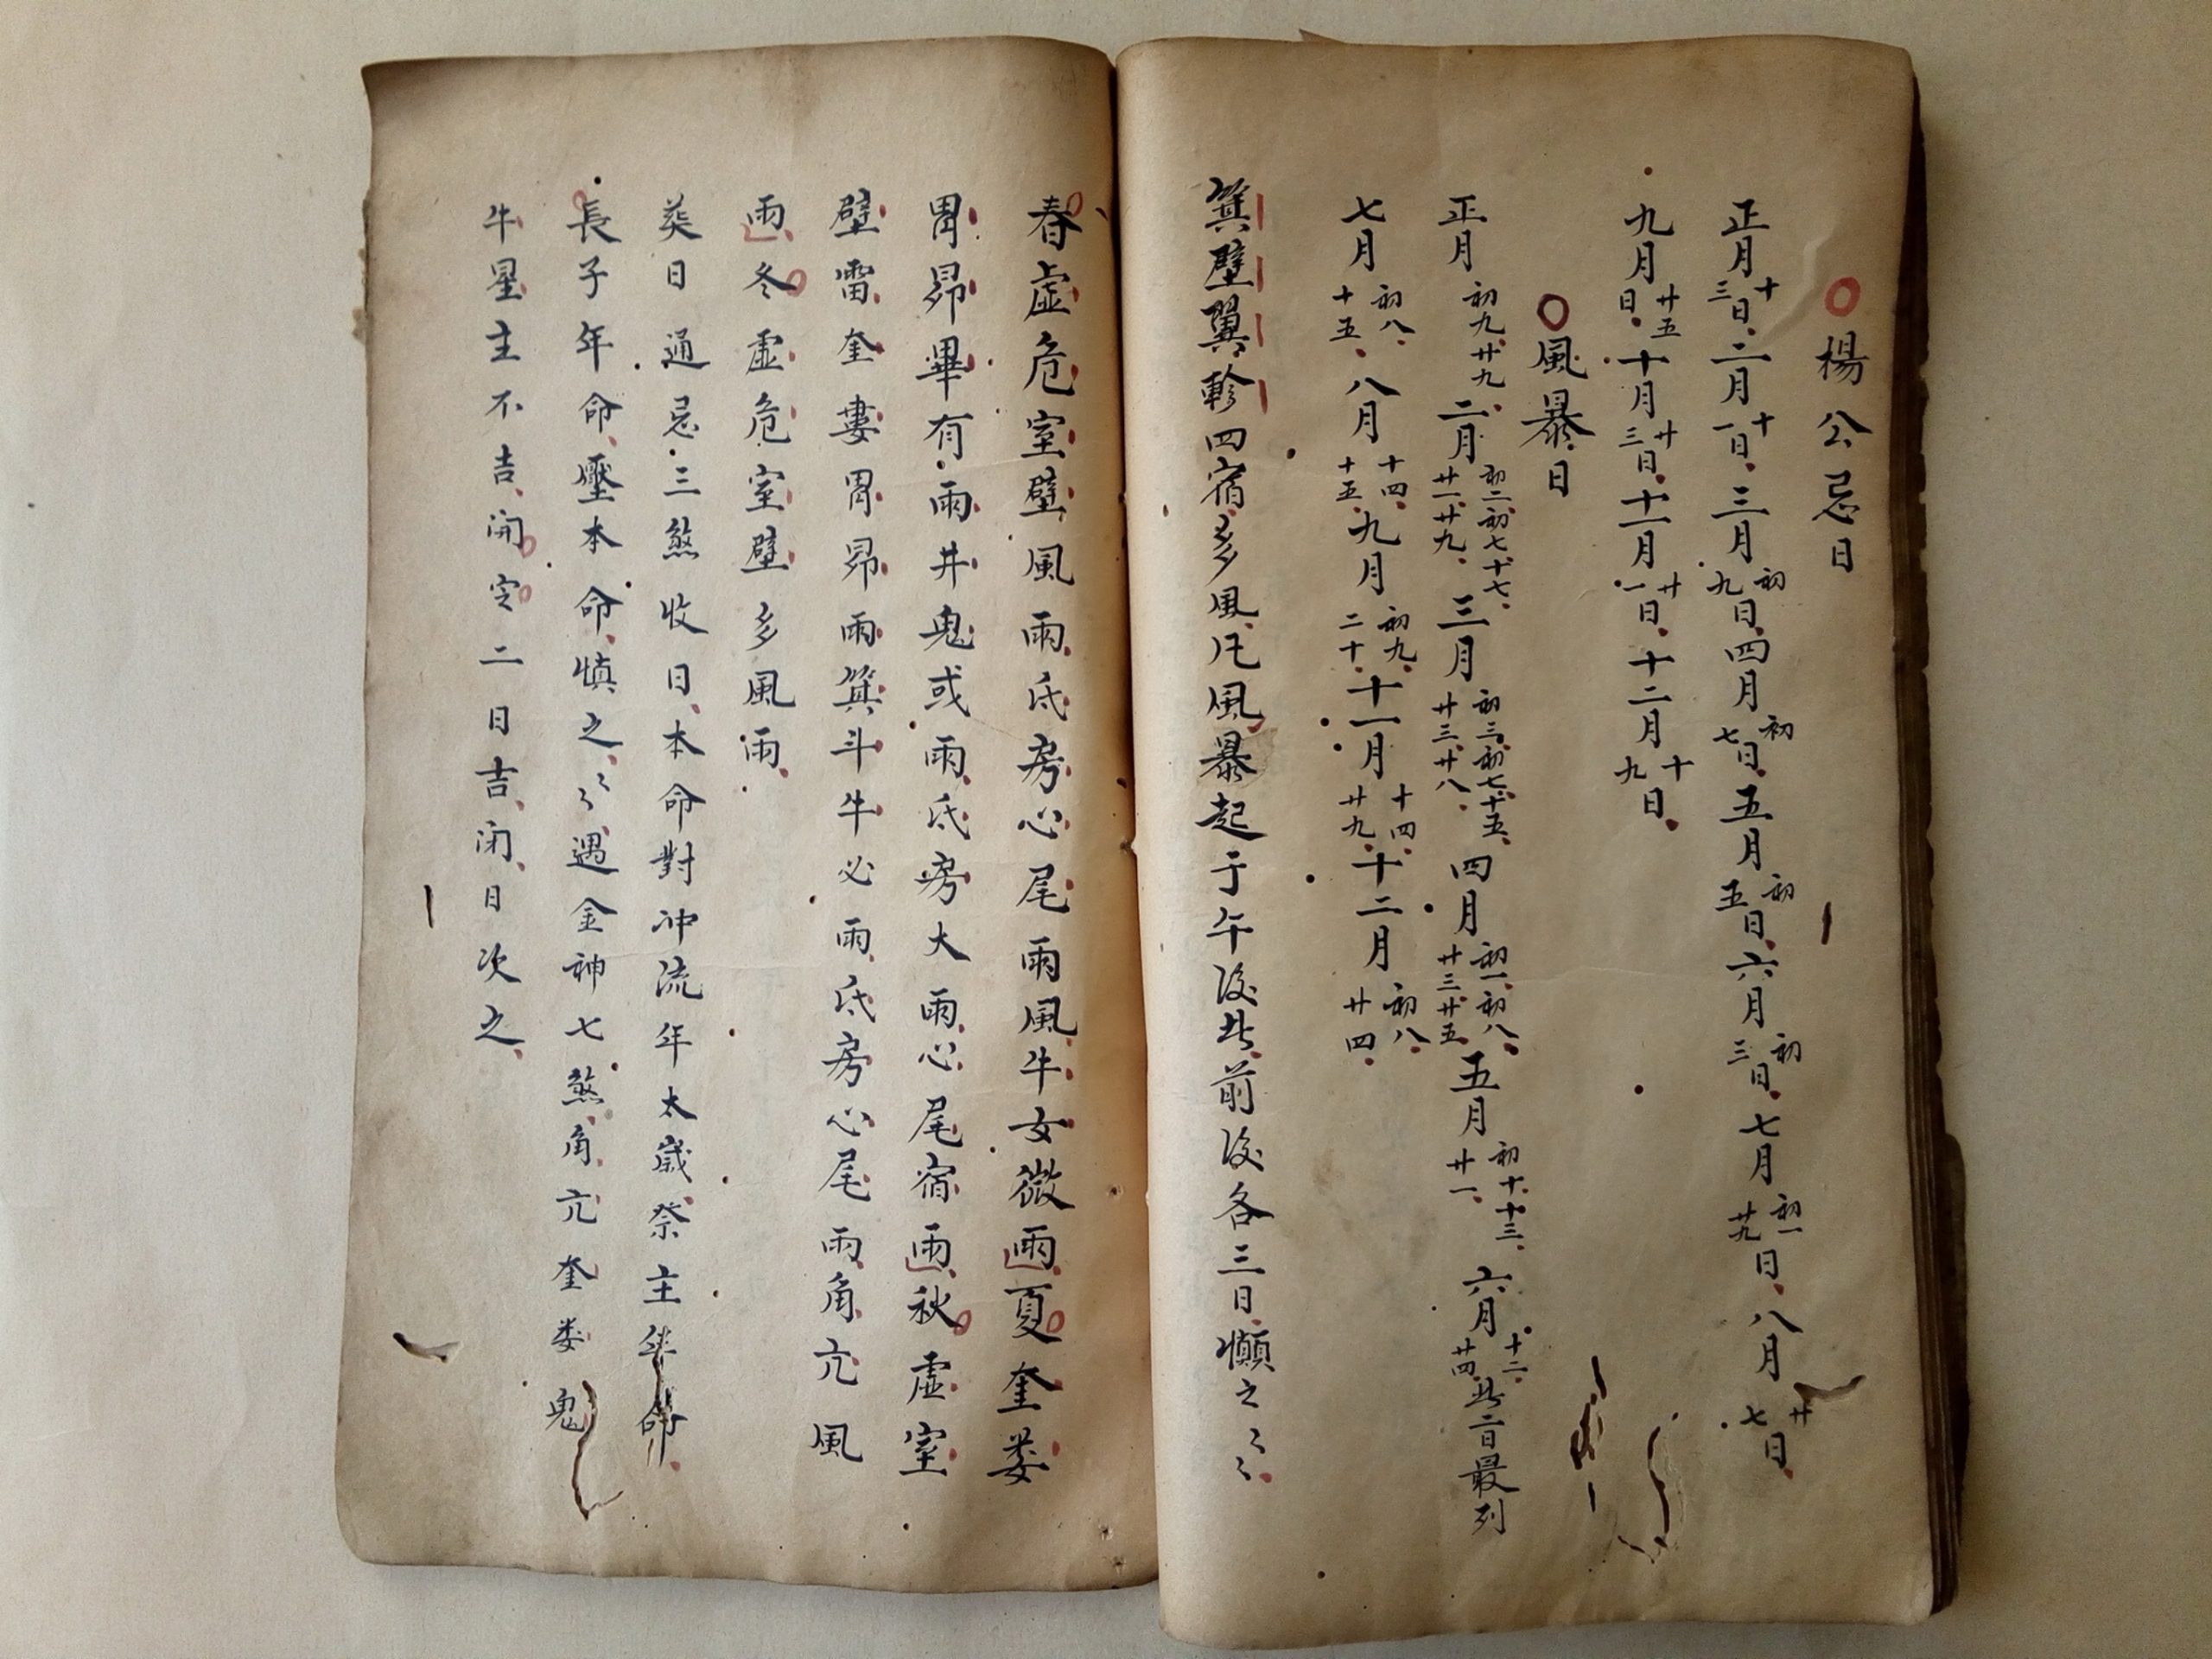 楊公忌日
正月十三日二月十一日三月初九日四月初七日五月初五日六月初三日七月初一廿九日八月廿七日
九月廿五日十月廿三日十一月廿一日十二月十九日
風暴日
正月初九廿九二月初二初七十七廿一廿九三月初三初七十五廿三廿八四月初一初八廿三廿五五月初十十三廿一六月十二廿四此二日最列
七月初八十五八月十四十五九月初九二十十一月十四廿九十二月初八廿四
箕壁翼軫四宿多風凡風暴起于午後此前後各三日懶之〻
春虛危室壁風雨氐房心尾雨風牛女微雨夏奎娄
胃昴畢有雨井鬼或雨氐房大雨心尾宿雨秋虛室
壁雷奎婁胃昴雨箕斗牛必雨氐房心尾雨角亢風
雨冬虛危室壁多風雨
葵日通忌三煞收日本命對冲流年太歲祭主年命
長子年命壓本命慎之〻遇金神七煞角亢奎娄鬼
牛星主不吉開定二日吉闭日次之